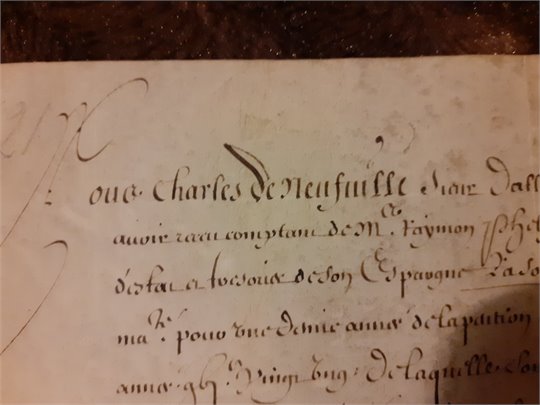 Nous Charles de Neufuille Sieur Dall
auoir receu comptant de Me. Raymon Phel
destat et tresorier de son Espargne La so
mate. pour vne demie année de la pention
année vingt vng. de laquelle so